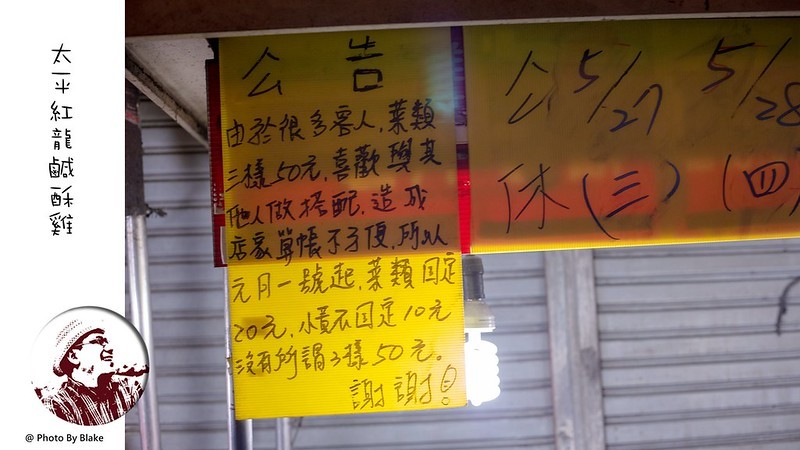 太平紅龍鹹酥雞
公告
由於很多客人,菜類
三樣50元,喜歡與其
他人做搭配,造成
店家算帳不方便,所以
元月一號起,菜類固定
20元,小 固定10元
沒有所謂3樣50元。
謝謝!
公 5/27 5/28
休 (三) (四)
@ Photo By Blake